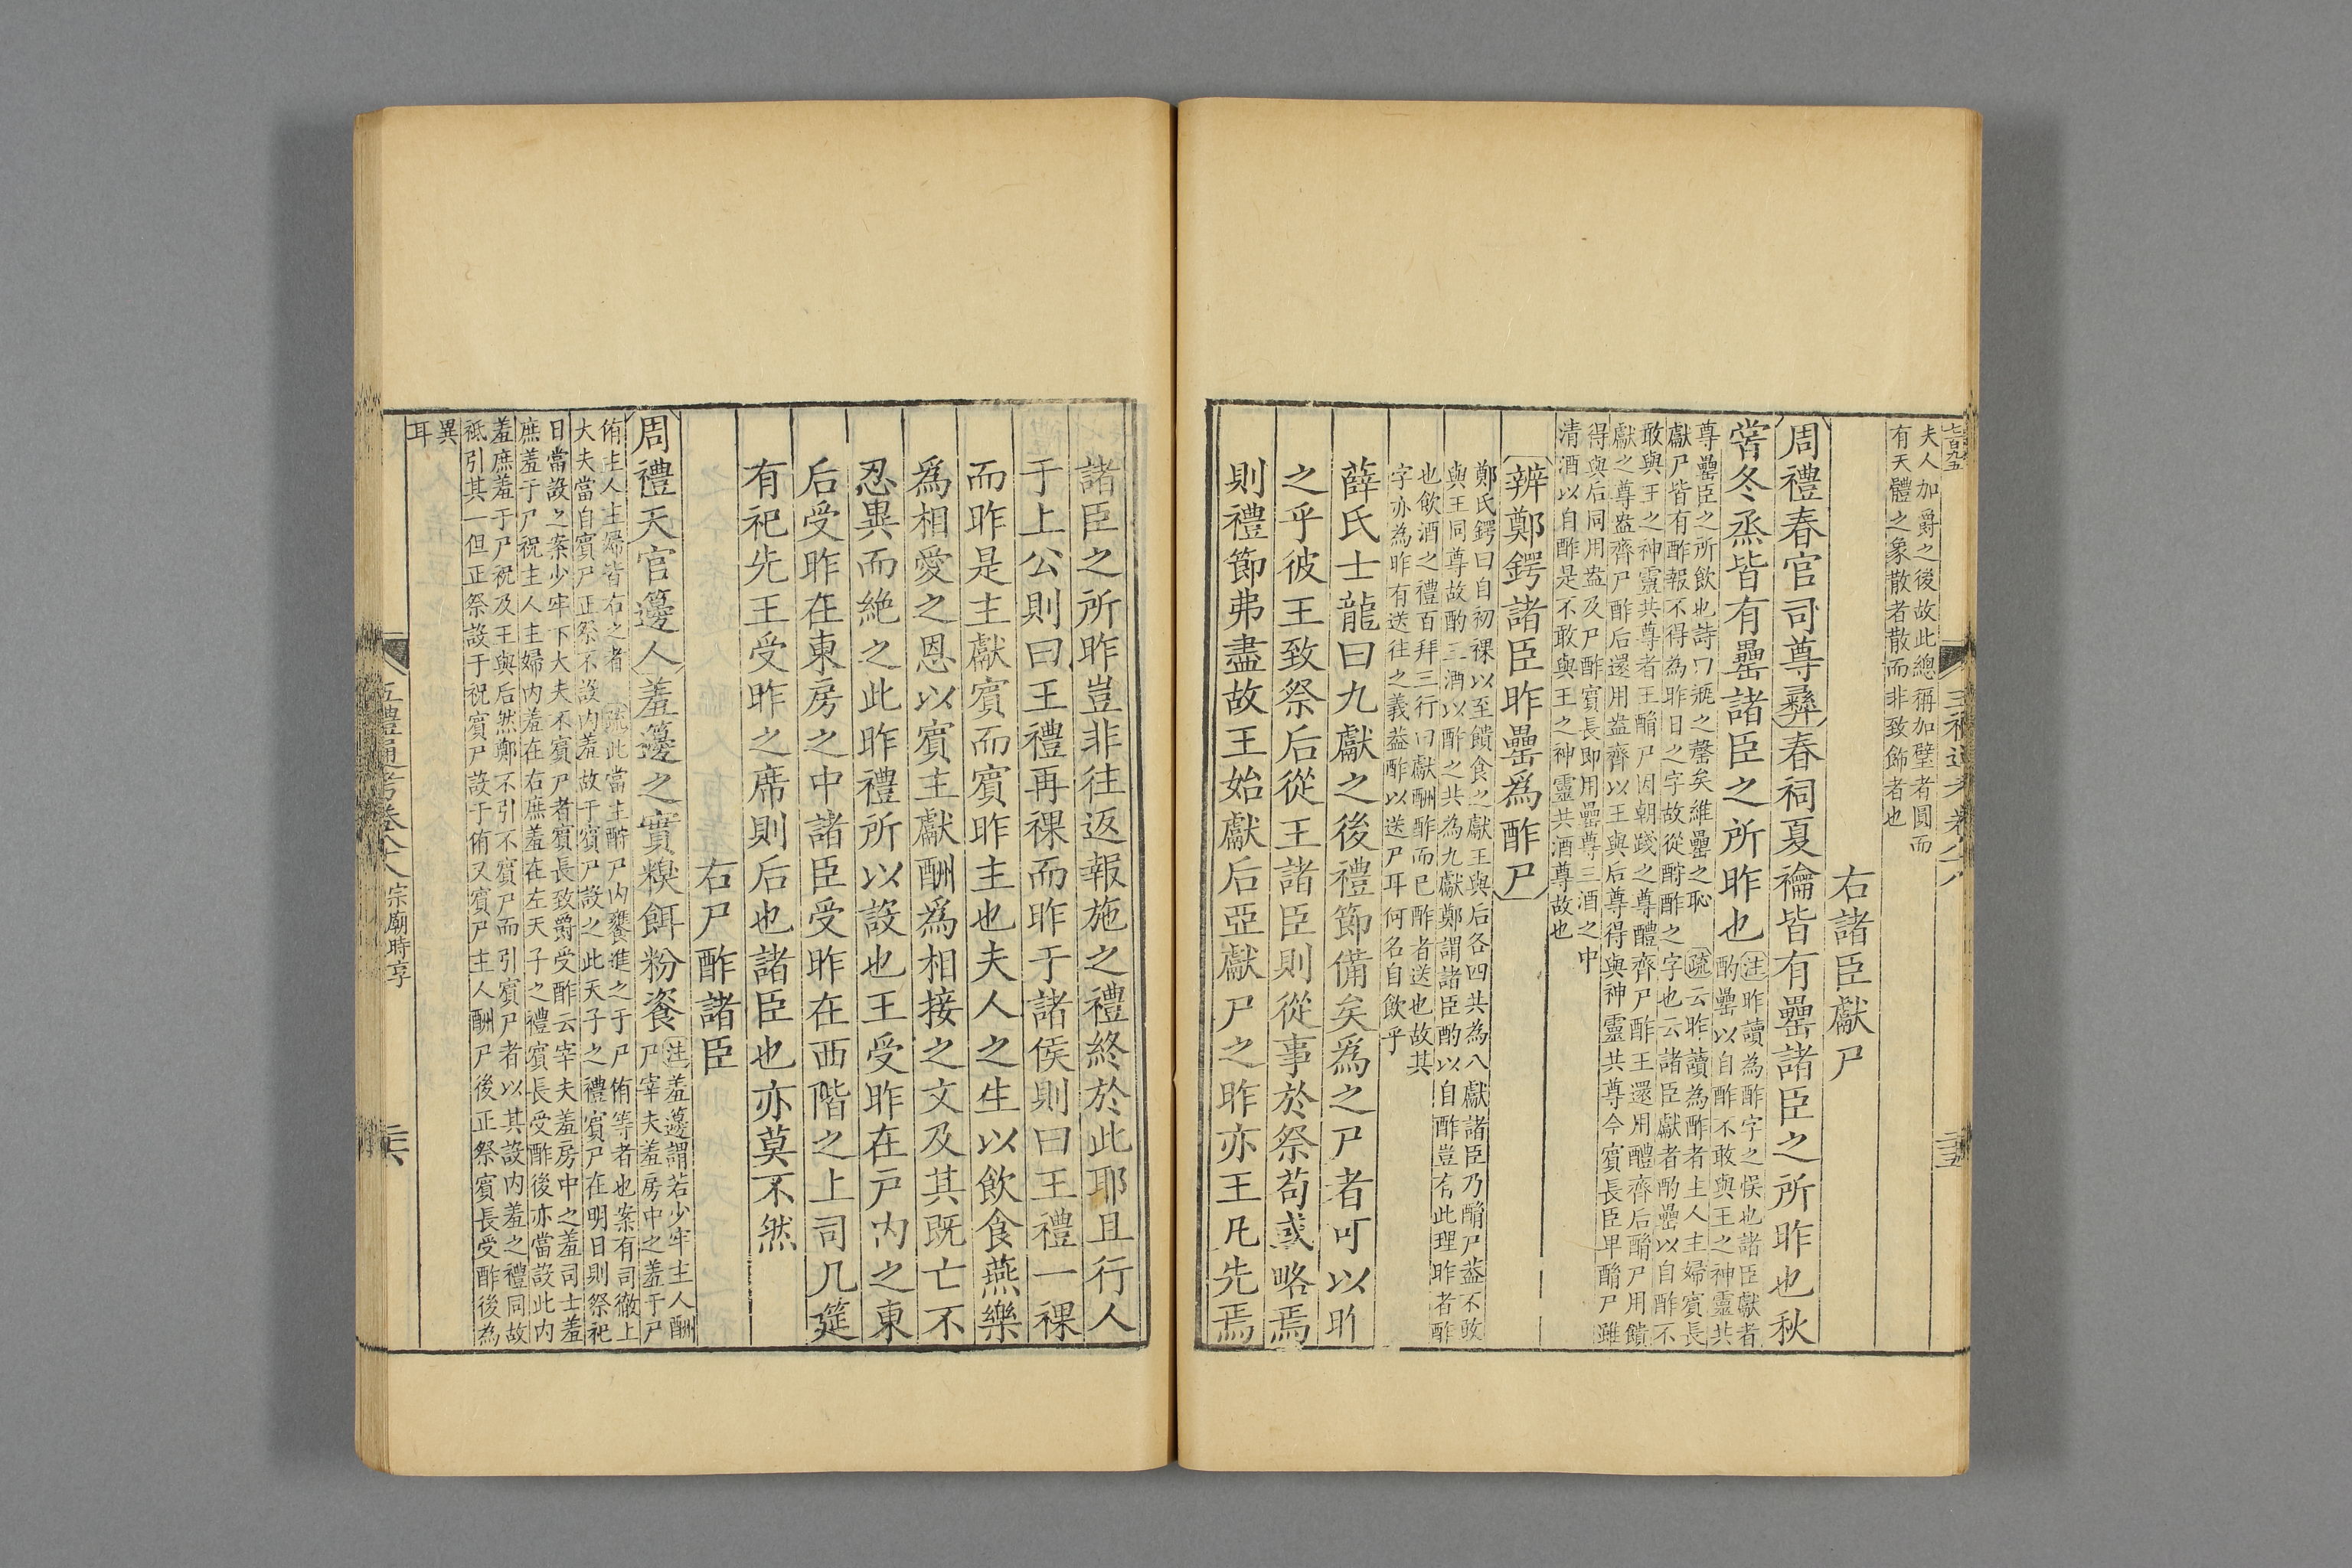 夫人加爵之後故此總稱加璧者圓而
有天體之象散者散而非致飾者也
右諸臣獻尸
周禮春官司尊彝春祠夏禴皆有罍諸臣之所昨也秋
嘗冬烝皆有罍諸臣之所昨也
注昨讀為酢字之悞也諸臣獻者
酌罍以自酢不敢與王之神靈共
尊罍臣之所飲也詩曰缾之罄矣維罍之恥
疏云昨讀為酢者主人主婦賓長
獻尸皆有酢報不得為昨日之字故從酬酢之字也云諸臣獻者酌罍以自酢不
敢與王之神靈共尊者王酳尸因朝踐之尊醴齊尸酢王還用醴齊后酳尸用饋
獻之尊盎齊尸酢后還用盎齊以王與后尊得與神靈共尊今賓長臣卑酳尸雖
得與后同用盎及尸酢賓長即用罍尊三酒之中
清酒以自酢是不敢與王之神靈共酒尊故也
辨鄭鍔諸臣昨罍爲酢尸
鄭氏鍔曰自初祼以至饋食之獻王與后各四共為八獻諸臣乃酳尸葢不敢
與王同尊故酌三酒以酢之共為九獻鄭謂諸臣酌以自酢豈有此理昨者酢
也飲酒之禮百拜三行曰獻酬酢而已酢者送也故其
字亦為昨有送往之義葢酢以送尸耳何名自飲乎
薛氏士龍曰九獻之後禮節備矣爲之尸者可以昨
之乎彼王致祭后從王諸臣則從事於祭苟惑略焉
則禮節弗盡故王始獻后亞獻尸之昨亦王凡先焉
諸臣之所昨豈非往返報施之禮終於此耶且行人
于上公則曰王禮再祼而昨于諸侯則曰王禮一祼
而昨是主獻賓而賓昨主也夫人之生以飲食燕樂
爲相愛之恩以賓主獻酬爲相接之文及其既亡不
忍異而絶之此昨禮所以設也王受昨在戸內之東
后受昨在東房之中諸臣受昨在西階之上司几筵
有祀先王受昨之席則后也諸臣也亦莫不然
右尸酢諸臣
周禮天官籩人羞籩之實糗餌粉餈
注羞籩謂若少牢主人酬
尸宰夫羞房中之羞于尸
侑主人主婦皆右之者
疏此當主酳尸內饔進之于尸侑等者也案有司徹上
大夫當自賓尸正祭不設內羞故于賓尸設之此天子之禮賓尸在明日則祭祀
日當設之案少牢下大夫不賓尸者賓長致爵受酢云宰夫羞房中之羞司士羞
庶羞于尸祝主人主婦內羞在右庶羞在左天子之禮賓長受酢後亦當設此內
羞庶羞于尸祝及王與后然鄭不引不賓尸而引賓尸者以其設內羞之禮同故
祗引其一但正祭設于祝賓尸設于侑又賓尸主人酬尸後正祭賓長受酢後為
異
耳
五禮通考卷八十八
宗廟時享